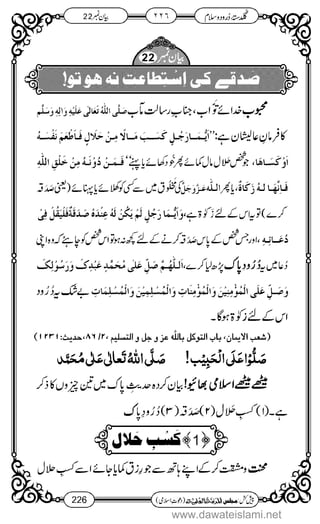 بیان نمبر 22 ۲۲۶ گلدستۂ درود و سلام
بیان نمبر 22
صدقے کی اِسْتِطاعت نہ ھو تو!
محبوبِ خدائے توّاب، جنابِ رسالت مآب صَلَّی اللّٰہُ تَعَالٰی عَلَیْہِ وَاٰلِہٖ وَسَلَّم
کا فرمانِ عالیشان ہے: ’’اَیُّمَا رَجُلٍ کَسَبَ مَالًا مِنْ حَلَالٍ فَاَطْعَمَ نَفْسَہُ
اَوْ کَسَاھَا، جو شخص حلال مال کمائے پھر وہ خود کھائے یا پہنے‘‘ فَمَنْ دُوْنَہُ مِنْ خَلْقِ اللّٰہِ
فَاِنَّھَا لَہُ زَکَاۃٌ، یا پھر اللّٰہ عَزَّوَجَلَّ کی مخلوق میں سے کسی کو کھلائے یا پہنائے (یعنی صدقہ
کرے) تو یہ اس کے لئے زکوٰۃ ہے، وَاَیُّمَا رَجُلٍ لَمْ یَکُنْ عِنْدَہُ صَدَقَۃٌ فَلْیَقُلْ فِیْ
دُعَـائِـہٖ، اور جس شخص کے پاس صدقہ کرنے کے لئے کچھ نہ ہو تو اس شخص کو چاہئے کہ وہ اپنی
دُعا میں یہ دُرُودِ پاک پڑھ لیا کرے اَللّٰھُمَّ صَلِّ عَلٰی مُحَمَّدٍ عَبْدِکَ وَرَسُوْلِکَ
وَصَلِّ عَلَی الْمُؤْمِنِیْنَ وَالْمُؤْمِنَاتِ وَالْمُسْلِمِیْنَ وَالْمُسْلِمَاتِ بے شک یہ دُرُود
اس کے لئے زکوٰۃ ہوگا۔
(شعب الایمان، باب التوکل باللّٰہ عز و جل و التسلیم، ۲/۸۶، حدیث: ۱۲۳۱)
صَلُّوْا عَلَی الْحَبِیْب! صَلَّی اللّٰہُ تَعَالٰی عَلٰی مُحَمَّد
میٹھے میٹھے اسلامی بھائیو! بیان کردہ حدیثِ پاک میں تین چیزوں کا ذکر
ہے۔ (۱) کسبِ حلال (۲) صَدَقہ (۳) دُرُودِ پاک
﴿1﴾ کَسْبِ حَلَال
محنت و مشقت کر کے اپنے ہاتھ سے جو رِزق کمایا جائے اسے کسبِ حلال
226
www.dawateislami.net